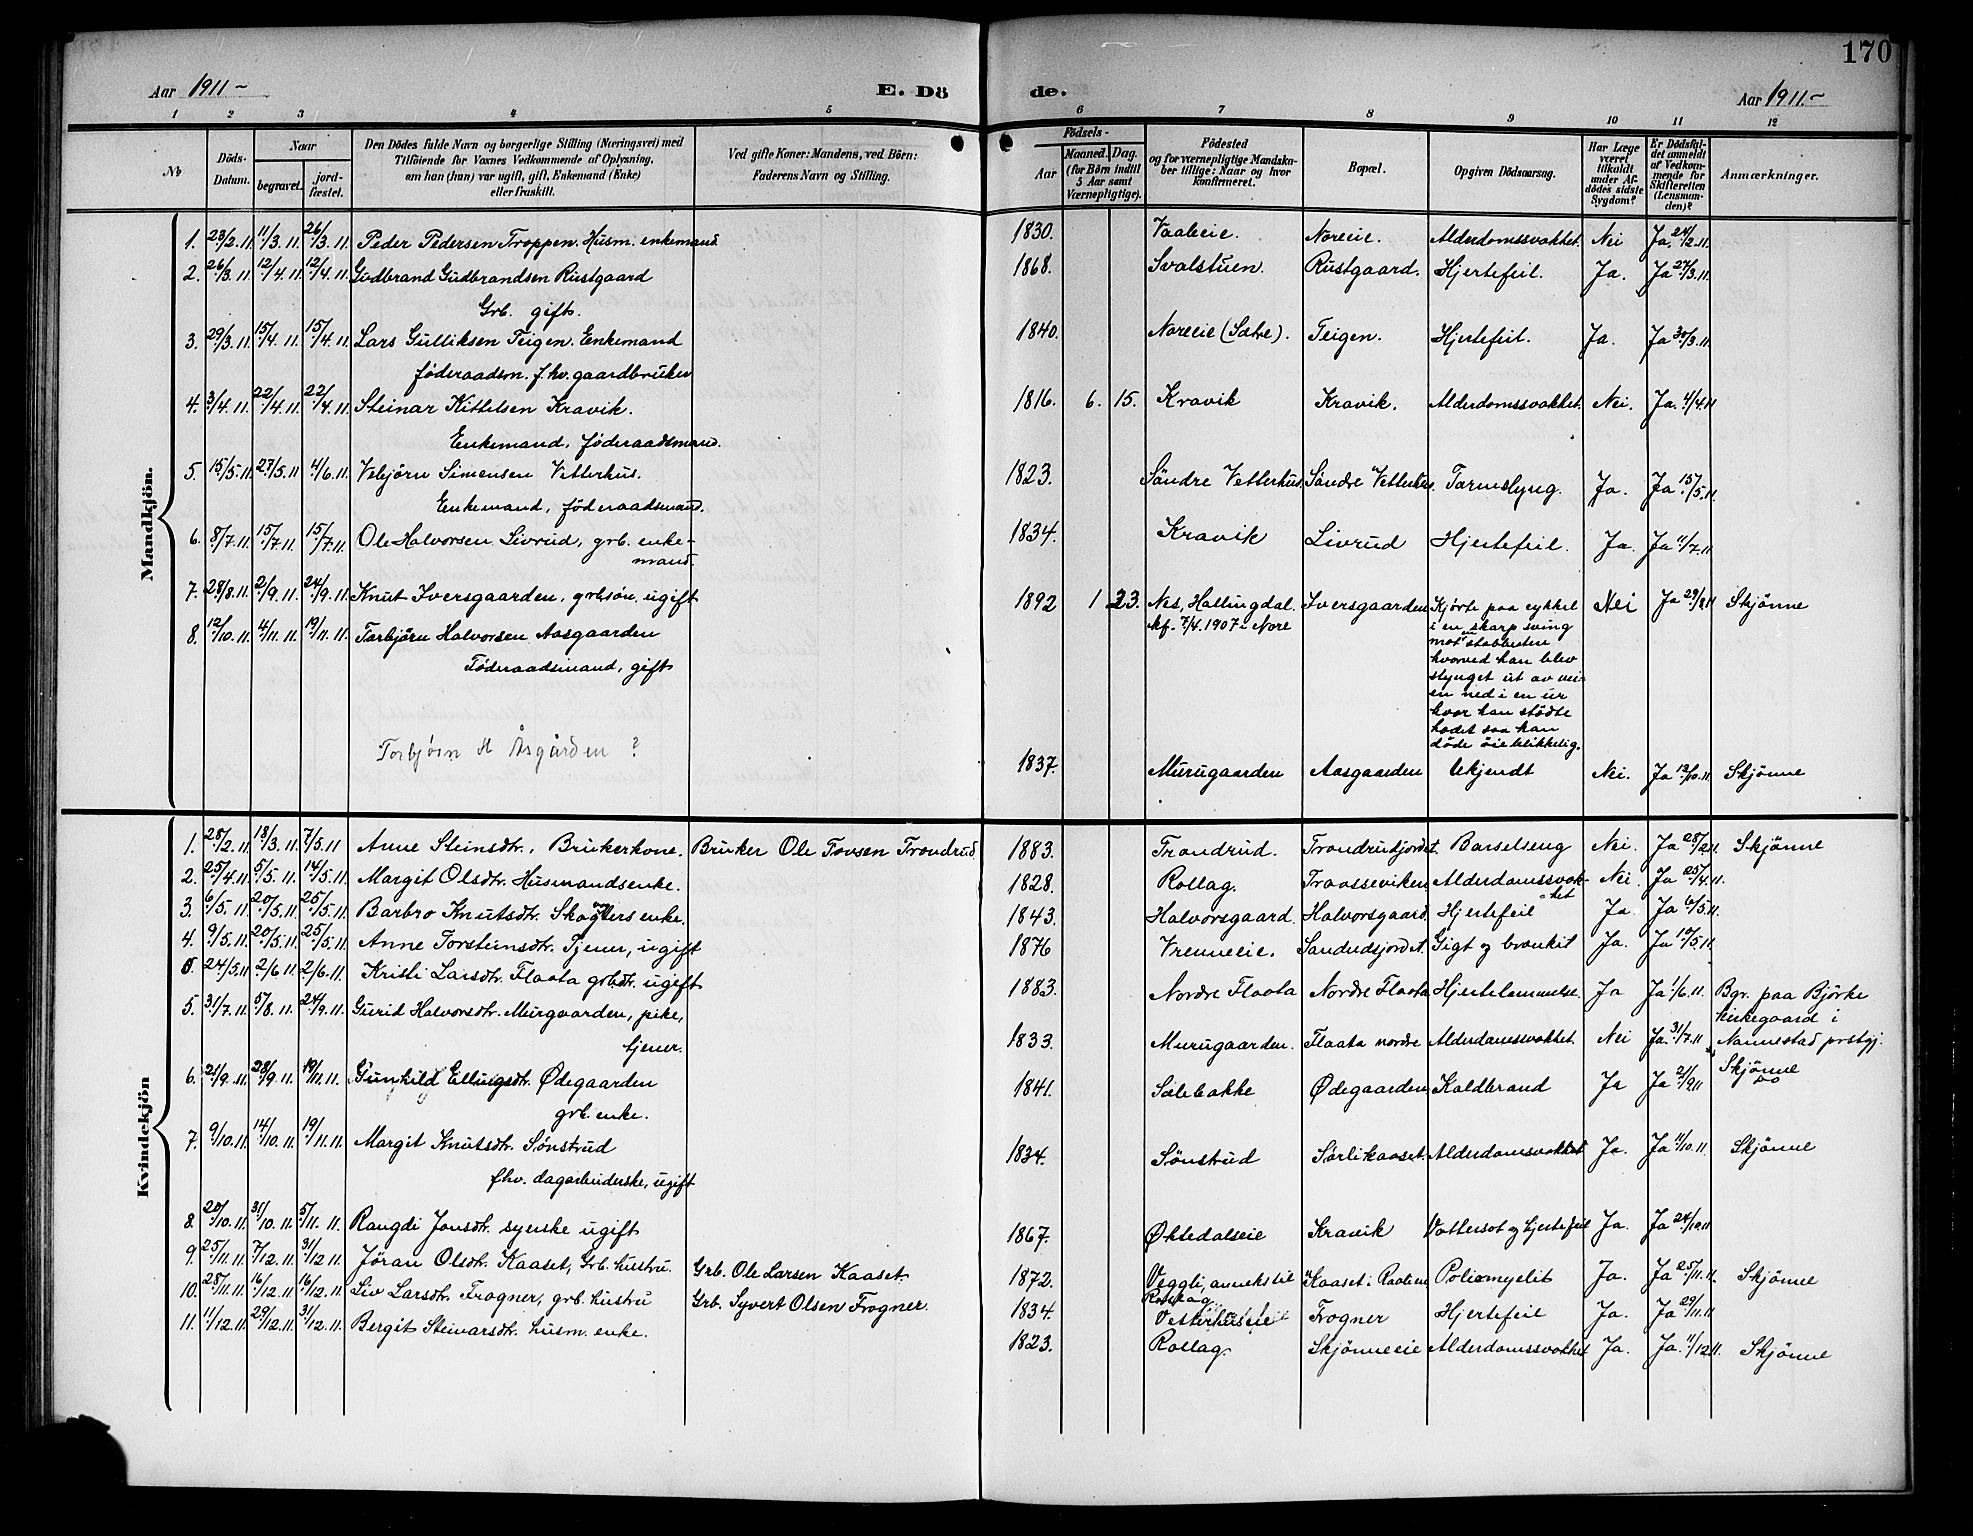 170
Aar 1911 -
E. Dö
de.
Aar 1911. -
1 2 3 4 5 6 7 8 9 10 11 12
№
Döds-Datum.
Naar
begravet.
jord-fæstet.
Den Dödes fulde Navn og borgerlige Stilling (Næringsvei) med
Tilföiende for Voxnes Vedkommende af Oplysning,
om han (hun) var ugift, gift, Enkemand (Enke)
eller fraskilt.
Ved gifte Koner: Mandens, ved Börn:
Faderens Navn og Stilling.
Födsels-
Aar
Maaned. Dag.
(for Börn indtil
5 Aar samt
Værnepligtige).
Födested
og for værnepligtige Mandska-
ber tillige: Naar og hvor
konfirmeret.
Bopæl.
Opgiven Dödsaarsag.
Har Læge
været
tilkaldt
under Af-
dödes sidste
Sygdom?
Er Dödsfal-
det anmeldt
af Vedkom-
mende for
Skifteretten
(Lensman-
den)?
Anmærkninger.
Mandkjön.
1. 23/2.11 11/3.11 26/3.11 Peder Pedersen Troppen. Husm. enkemand 1830. Vaaleie. Noreeie. Alderdomssvakhet. Nei Ja 24/2.11.
2. 26/3.11 12/4.11 12/4.11. Gudbrand Gudbrandsen Rustgaard 1868. Svalstuen. Rustgaard. Hjertefeil. Ja. Ja 27/3.11.
Grb. gift.
3. 29/3.11 15/4.11. 15/4.11. Lars Gulliksen Teigen. Enkemand 1840. Noreeie (Sætre). Teigen. Hjertefeil. Ja. Ja 30/3.11.
føderaadsm. f.hv. gaardbruker
4. 3/4.11. 22/4.11. 22/4.11. Steinar Kittelsen Kravik. 1816. 6. 15. Kravik Kravik. Alderdomssvakhet. Nei. Ja. 4/4.11
Enkemand, føderaadsmand.
5. 15/5.11. 27/5.11 4/6.11. Vebjørn Simensen Vetterhus. 1823. Söndre Vetterhus. Söndre Vetterhus. Tarmslyng. Ja. Ja 15/5.11.
Enkemand, föderaadsmand.
6. 8/7.11. 15/7.11. 15/7.11. Ole Halvorsen Livrud, grb. enke- 1834. Kravik Livrud Hjertefeil. Ja. Ja 11/7.11
mand.
7. 28/8.11. 2/9.11. 24/9.11. Knut Iversgaarden, grbsøn, ugift 1892 1 23. Nes, Hallingdal. Iversgaarden Kjørte paa cykkel Nei Ja 29/8.11 Skjönne
kf. 7/4.1907 i Nore
i en skarp sving
mot en stabbesten
hvorved han blev
slynget ut av vei-
en ned i en ur
hvor han stödte
hodet saa han
döde öieblikkelig.
8. 12/10.11. 4/11.11. 19/11.11. Torbjörn Halvorsen Aasgaarden
Föderaadsmand, gift
Torbjørn H Åsgården ?
1837. Murugaarden Aasgaarden Ukjendt Nei. Ja 13/10.11. Skjönne
Kvindekjön
1. 28/2.11. 18/3.11. 7/5.11 Anne Steinsdtr., Brukerkone. Bruker Ole Tovsen Trondrud 1883. Trondrud. Trondrudjordet. Barselseng Nei. Ja 28/2.11. Skjönne
2. 25/4.11. 5/5.11. 14/5.11. Margit Olsdtr. Husmandsenke. 1828. Rollag. Traasseviken Alderdomssvak-
het Nei. Ja 25/4.11.
3. 6/5.11 20/5.11 25/5.11. Barbro Knutsdtr. enke. 1843. Halvorsgaard. Halvorsgaard. Hjertefeil Ja Ja 6/5.11.
4. 9/5.11. 20/5.11. 25/5.11. Anne Torsteinsdtr. Tjener, ugift 1876 Vrenneeie. Gigt og bronkit Ja. Ja 10/5.11.
5. 24/5.11 2/6.11. 2/6.11. Kristi Larsdtr. Flaata grbdtr. ugift 1883. Nordre Flaata Nordre Flaata Hjertelammelse. Ja Ja 1/6.11. Bgr. paa Björke
kirkegaard i
Nannestad prstgj.
5. 31/7.11. 5/8.11. 24/9.11. Gurid Halvorsdtr. Murgaarden, pike, 1833. Murugaarden. Flaata nordre Alderdomssvakhet. Nei Ja. 31/7.11 Skjönne
tjener.
6. 21/9.11. 28/9.11. 19/11.11. Gunhild Ellingsdtr. Ødegaarden 1841. Sælebakke Ødegaarden Koldbrand Ja Ja 21/9.11 do
grb. enke.
7. 9/10.11. 14/10.11. 19/11.11. Margit Knutsdtr. Sønstrud 1834. Sönstrud Sörlikaaset. Alderdomssvakhet Ja. Ja 11/10.11. Skjönne
fhv. dagarbeiderske, ugift
8. 20/10.11. 31/10.11. 5/11.11. Rangdi Jonsdtr. syerske ugift 1867. Øktedalseie Kravik Vattersot og hjertefeil Ja. Ja 24/10.11
9. 25/11.11. 7/12.11. 31/12.11. Jöran Olsdtr. Kaaset, Grb. hustru. Grb. Ole Larsen Kaaset. 1872. Veggli, annekstil
Rollag Kaaset i Poliomyelit Ja. Ja 25/11.11. Skjönne
10. 28/11.11. 16/12.11. 16/12.11. Liv Larsdtr. Frogner, grb. hustru Grb. Syvert Olsen Frogner. 1834. Vetterhuseie Frogner Hjertefeil Ja. Ja 29/11.11.
11. 11/12.11. 29/12.11. 31/12.11. Bergit Steinarsdtr. husm. enke. 1823. Rollag. Skjönneeie Alderdomssvakhet Ja. Ja. 11/12.11. Skjönne